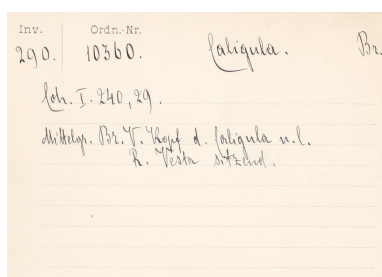 Inv. Ordn.-Nr.
290. 10360. Caligula. Br.
Coh. I. 240, 29.
Mittelgr. Br. V. Kopf d. Caligula n. l.
R. Vesta sitzend.